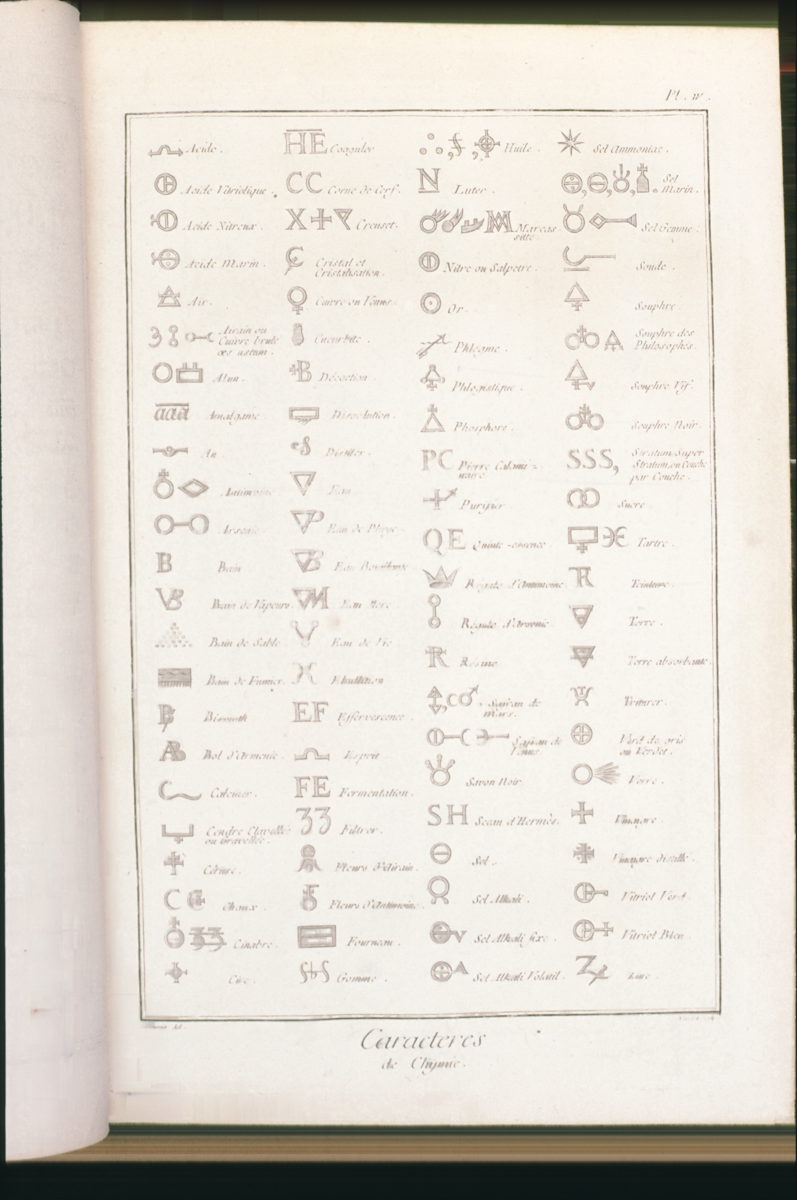 Pl. IV.
Acide.
Acide Vitriolique.
Acide Nitreux.
Acide Marin.
Air.
Airain ou
Cuivre brulé
œs ustum.
Alun.
aaa Amalgame
An
Antimoine
Arsenic.
B Bain.
VB Bain de Vapeurs.
Bain de Sable.
Bain de Fumier.
Bismuth
Bol d'Armenie.
Calciner.
Cendre Clavellée
ou Gravellée.
Céruse.
C Chaux.
Cinabre.
Cire.
HE Coaguler
CC Corne de Cerf.
Creuset.
Cristal et
Cristalisation.
Cuivre ou Vénus.
Cucurbite.
Décoction.
Dissolution.
Distiller.
Eau.
Eau de Pluye.
Eau Bouillante
Eau Mere.
Eau de Vie
Ebullition
EF Effervescence.
Esprit
FE Fermentation.
33 Filtrer.
Fleurs d'Airain.
Fleurs d'Antimoine.
Fourneau.
Gomme.
Huile.
N Luter.
Marcas
sitte
Nitre ou Salpetre.
Or.
Phlegme.
Phlogistique.
Phosphore.
PC Pierre Calami-
naire.
Purifier
QE Quinte-essence.
Regule d'Antimoine.
Regule d'Arsenic
R Résine
Safran de
Mars.
Safran de
Vénus.
Savon Noir.
SH Sceau d'Hermès.
Sel.
Sel Alkali.
Sel Alkali fixe.
Sel Alkali Volatil.
Sel Ammoniac.
Sel
Marin.
Sel Gemme.
Soude.
Souphre.
Souphre des
Philosophes.
Souphre Vif.
Souphre Noir.
SSS, Stratum Super
Stratum, ou Couche
par Couche.
Sucre.
Tartre.
Teinture.
Terre.
Terre absorbante.
Triturer.
Verd de gris
ou Verdet.
Verre.
Vinaigre.
Vinaigre distillé.
Vitriol Verd.
Vitriol Bleu.
Zinc.
Caracteres
de Chymie.